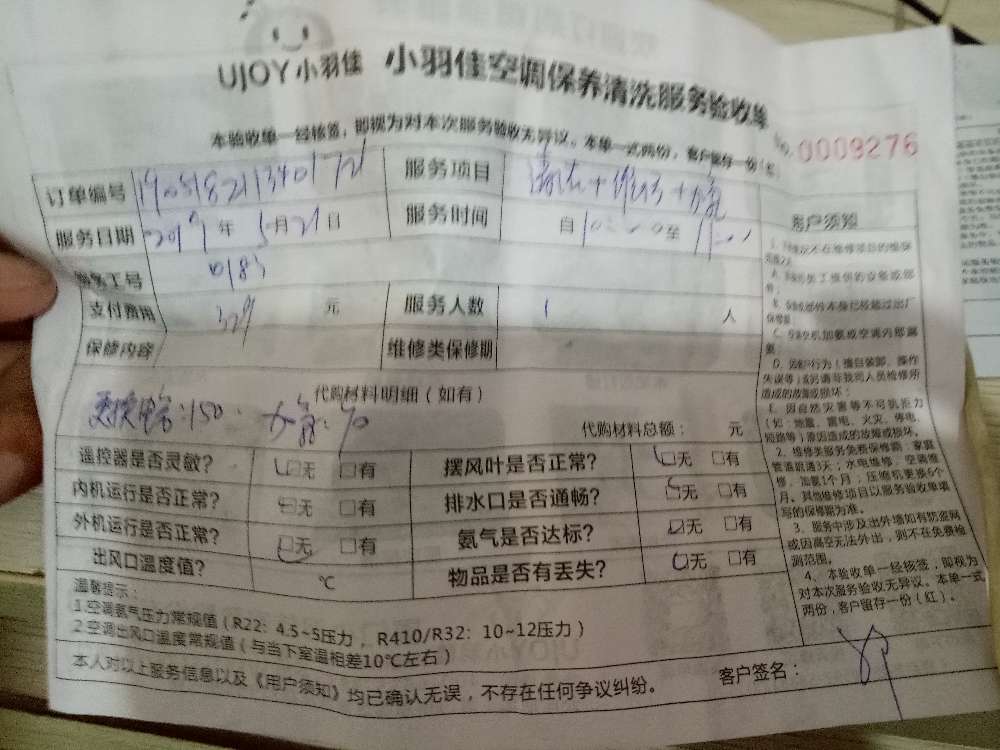 UJOY小羽佳 小羽佳空调保养清洗服务验收单
本验收单一经核签，即视为对本次服务验收无异议。本单一式两份，客户留存一份（红）
NO. 0009276
订单编号 服务项目
服务日期 2019年5月21日 服务时间 自10:00至11:00
服务工号 0183
支付费用 329 元 服务人数 1 人
保修内容 维修类保修期
代购材料明细（如有）
更换电容:150. 加氟:90
代购材料总额： 元
遥控器是否灵敏？ □无 □有 摆风叶是否正常？ □无 □有
内机运行是否正常？ □无 □有 排水口是否通畅？ □无 □有
外机运行是否正常？ □无 □有 氨气是否达标？ □无 □有
出风口温度值？ ℃ 物品是否有丢失？ □无 □有
温馨提示：
1.空调氨气压力常规值（R22：4.5~5压力， R410/R32：10~12压力）
2.空调出风口温度常规值（与当下室温相差10℃左右）
本人对以上服务信息以及《用户须知》均已确认无误，不存在任何争议纠纷。
客户签名：
客户须知
D、因
行为（擅自装卸、操作
失误等）或另请非我司人员检修所
造成的故障或损坏；
E、因自然灾害等不可抗拒力
（如：地震、雷电、火灾、停电、
短路等）原因造成的故障或损坏。
2、维修类服务免费保修期：家庭
管道疏通3天；水电维修、空调维
修、加氨1个月；压缩机更换6个
月。其他维修项目以服务验收单填
写的保修期为准。
3、服务中涉及出外墙如有防盗网
或因高空无法外出，则不在免费检
测范围。
4、本验收单一经核签，即视为
对本次服务验收无异议。本单一式
两份，客户留存一份（红）。